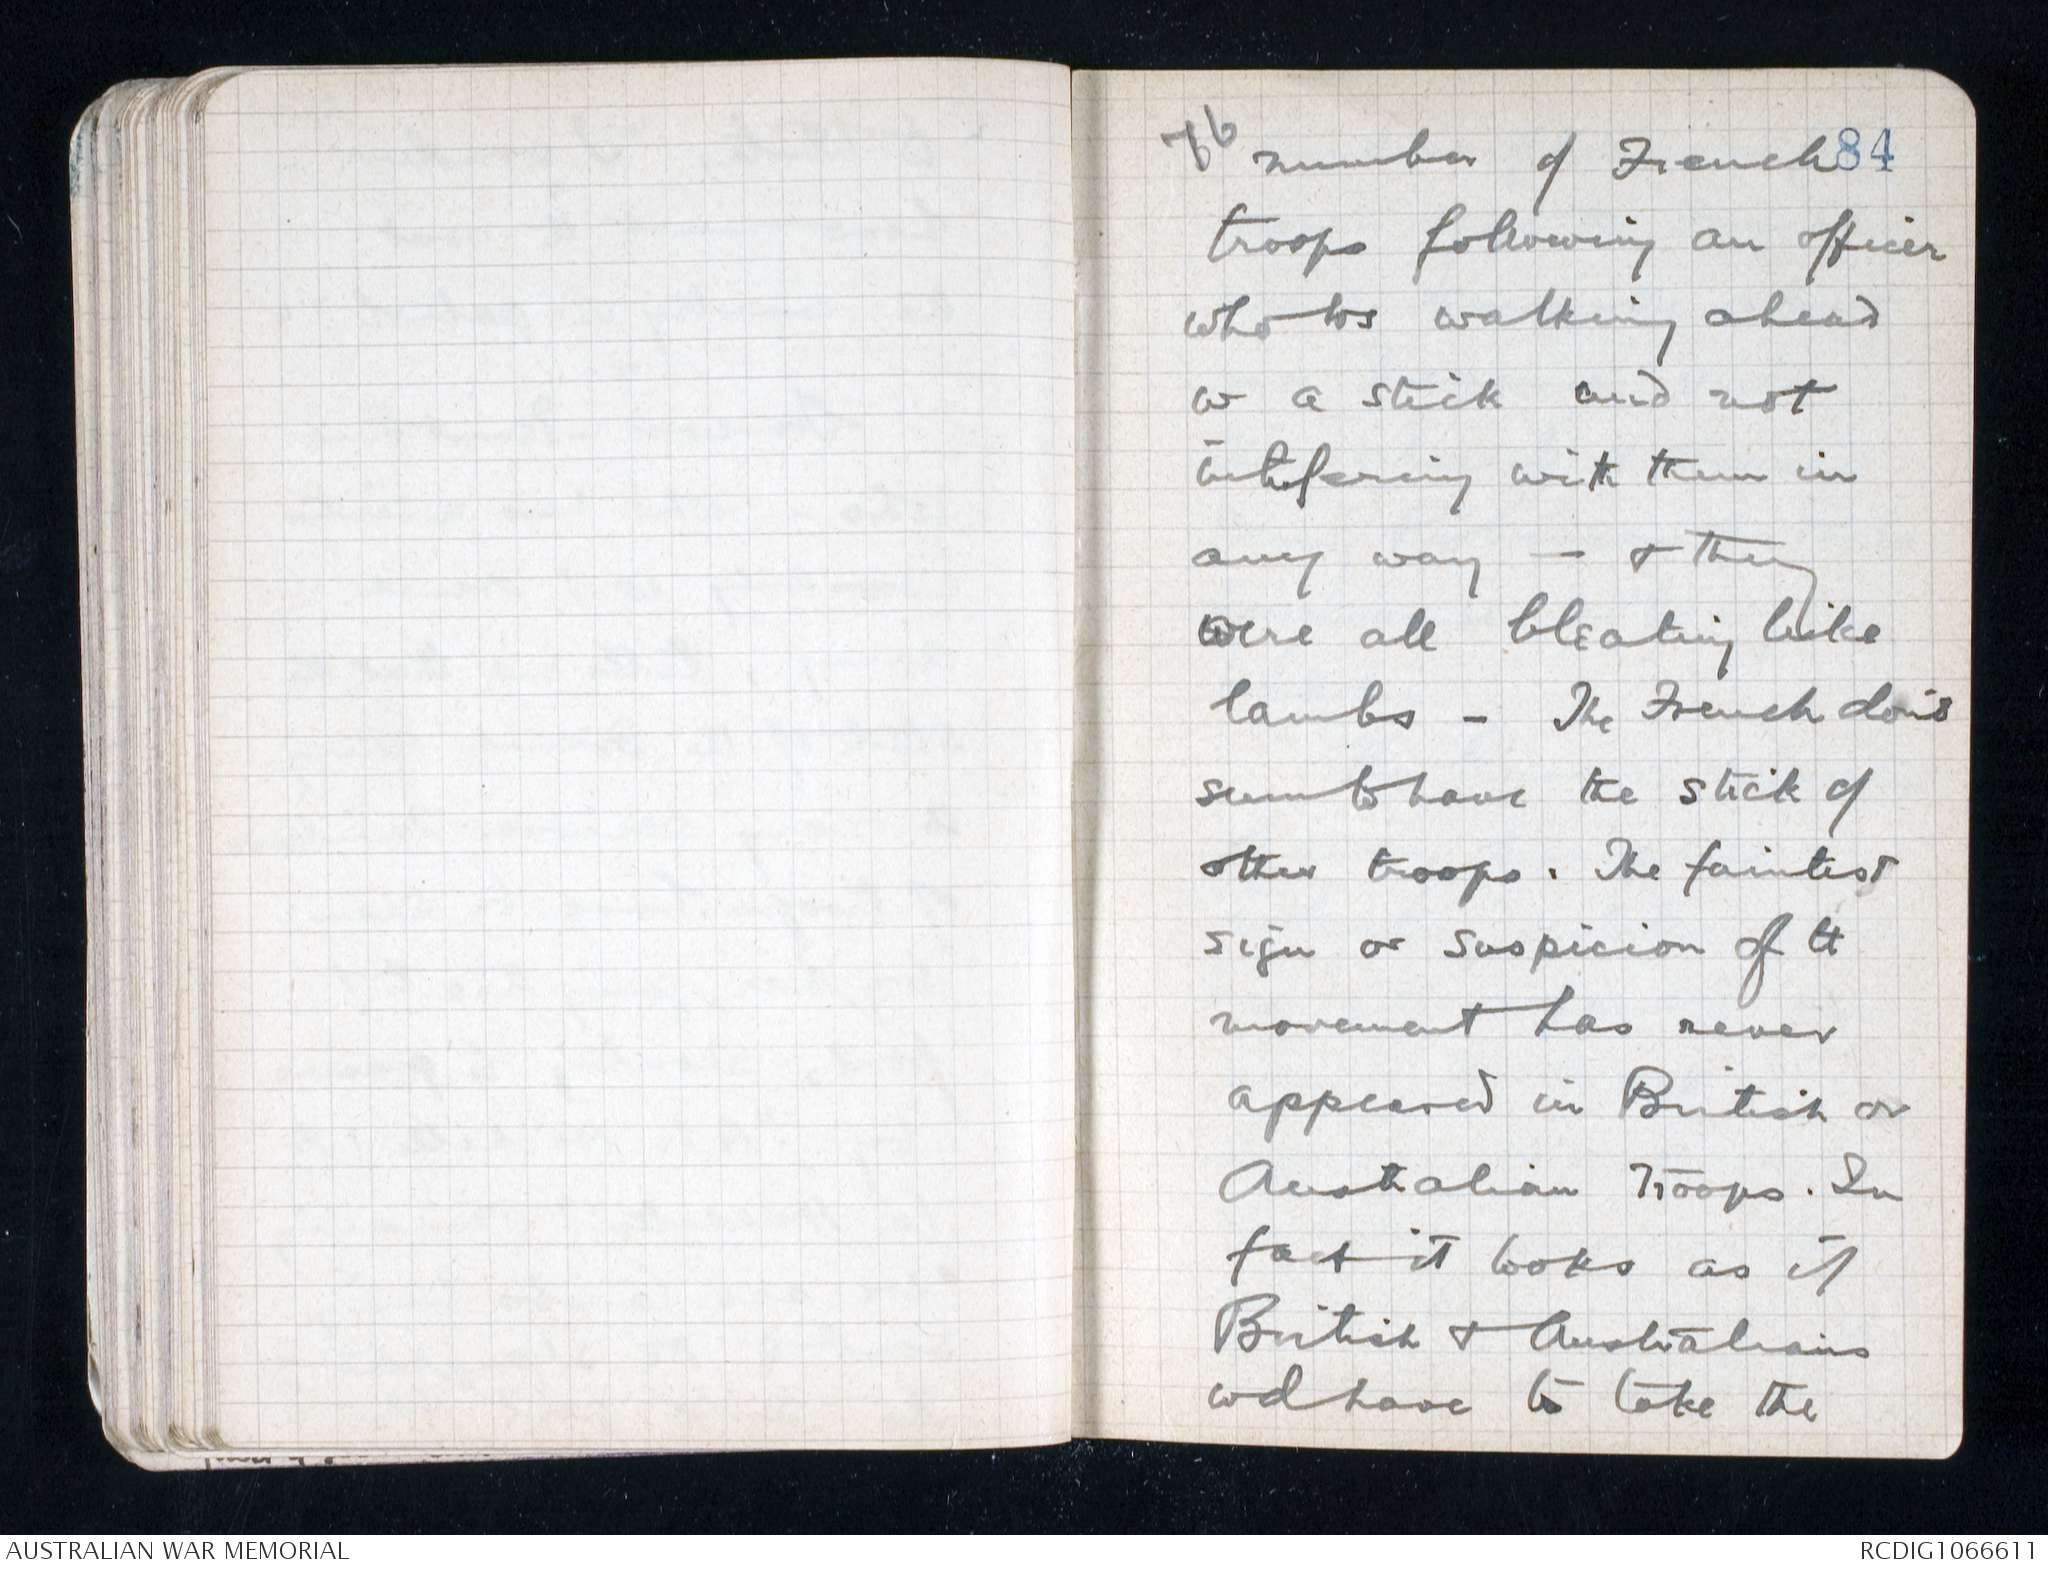 76
number of French 84
troops following an officer
who ws walking ahead
w a stick and not
interfering with them in
any way — & they
were all bleating like
lambs — The French don't
seem to have the stick of
other troops. The faintest
sign or suspicion of tt
movement has never
appeared in British or
Australian Troops. In
fact it looks as if
British & Australians
wd have to take the
AUSTRALIAN WAR MEMORIAL
RCDIG1066611